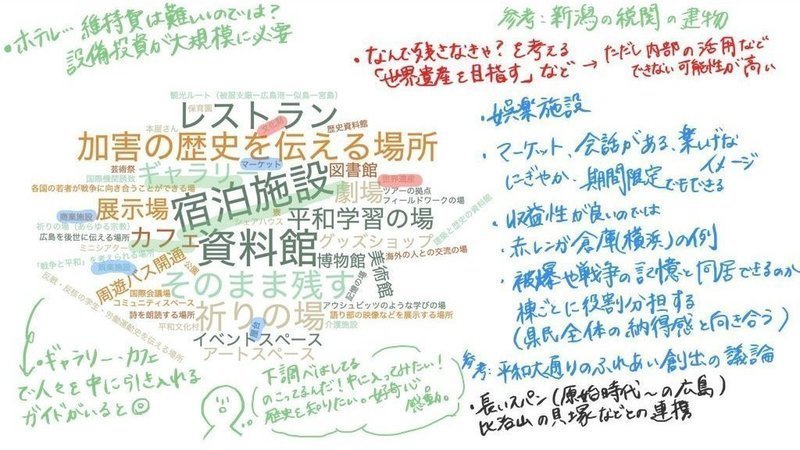 ・ホテル… 維持費は難しいのでは?
設備投資が大規模に必要
参考:新潟の税関の建物
・なんで残さなきゃ?を考える
「世界遺産を目指す」など → ただし内部の活用など
できない可能性が高い
観光ルート(被服支廠ー広島港ー似島ー宮島)
保育園
レストラン
本屋さん
文化祭
歴史資料館
加害の歴史を伝える場所
芸術祭
国際機関誘致
ギャラリー
マーケット
図書館
世界遺産
各国の若者が戦争に向き合うことができる場
宿泊施設
劇場
ツアーの拠点
フィールドワークの場
商業施設
祈りの場(あらゆる宗教)
展示場
シェアハウス
寮
平和学習の場
広島を後世に伝える場所
ミニシアター
カフェ
資料館
グッズショップ
建築と歴史の資料館
「戦争と平和」を考えられる場所
娯楽施設
博物館
海外の人との交流の場
美術館
周遊バス開通
公園
そのまま残す
記憶の場
国際会議場
コミュニティスペース
アウシュビッツのような学びの場
詩を朗読する場所
語り部の映像などを展示する場所
反戦・反核の学生・労働運動史を伝える場所
平和文化村
祈りの場
介護施設
イベントスペース
屋台
アートスペース
・娯楽施設
・マーケット、会話がある、楽しげな
にぎやか、イメージ
期間限定でもできる
・収益性が良いのでは
・赤レンガ倉庫(横浜)の例
・被爆や戦争の記憶と同居できるのか
棟ごとに役割分担する
(県民全体の納得感と向き合う)
参考:平和大通りのふれあい創出の議論
・長いスパン(原始時代〜の広島)
比治山の貝塚などとの連携
・ギャラリー・カフェ
で人々を中に引き入れる
ガイドがいると◎
下調べはしてる
のこってるんだ!中に入ってみたい!
歴史を知りたい。好奇心。
感動。